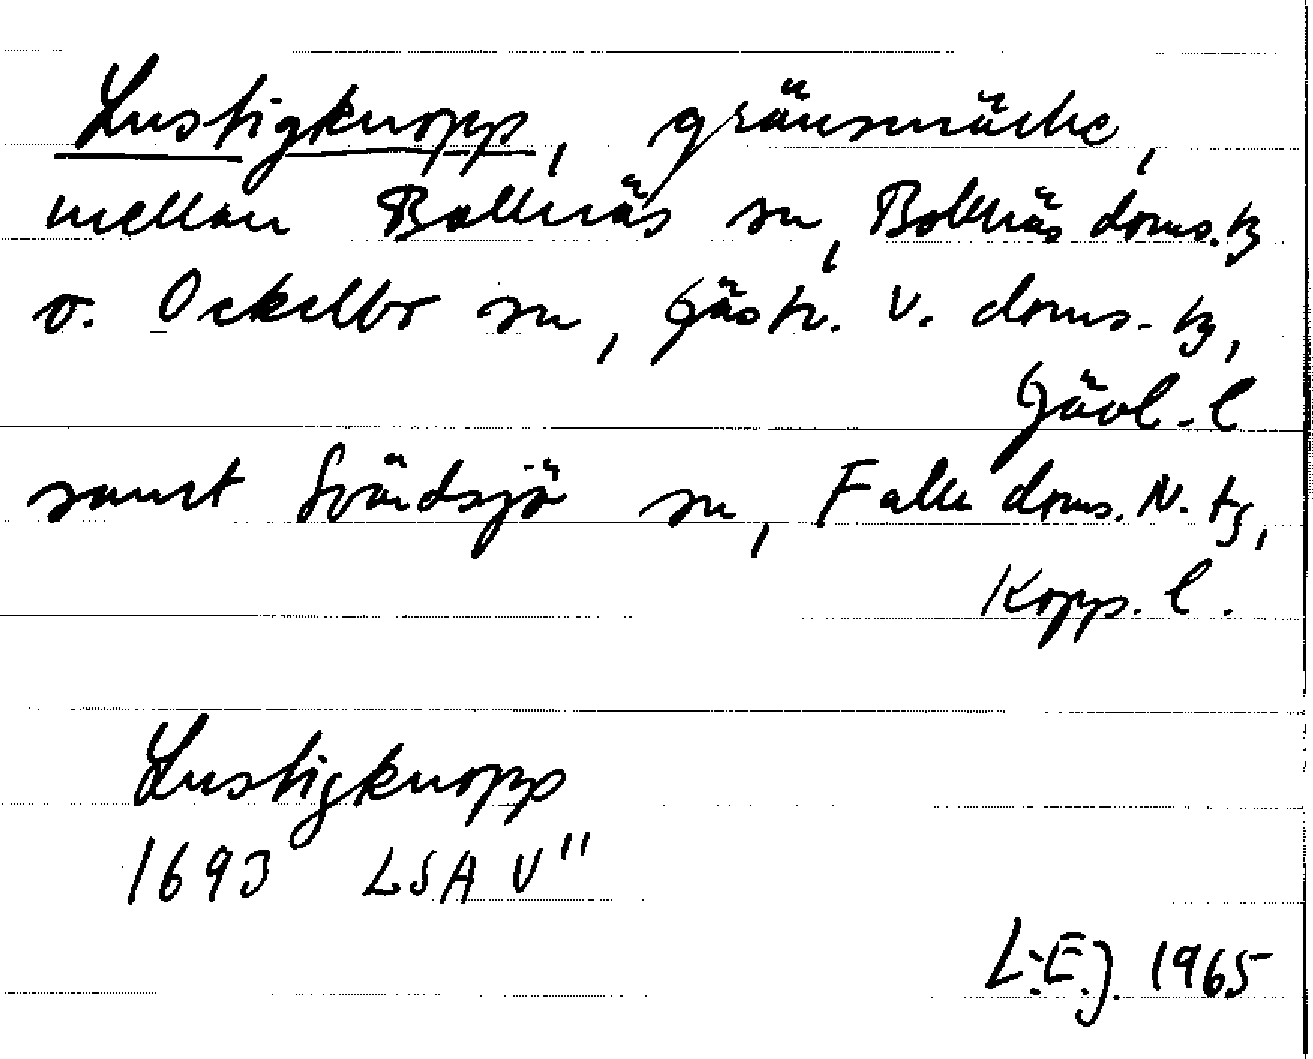 Lustigknopp, gränsmärke,
mellan Bollnäs sn, Bollnäs doms.tg
o. Ockelbo sn, Gästr. V. doms.tg,
Gävl. l
samt Svärdsjö sn, Falu doms. N. tg,
Kopp. l.
Lustigknopp
1693 LSA V"
L-E.J. 1965